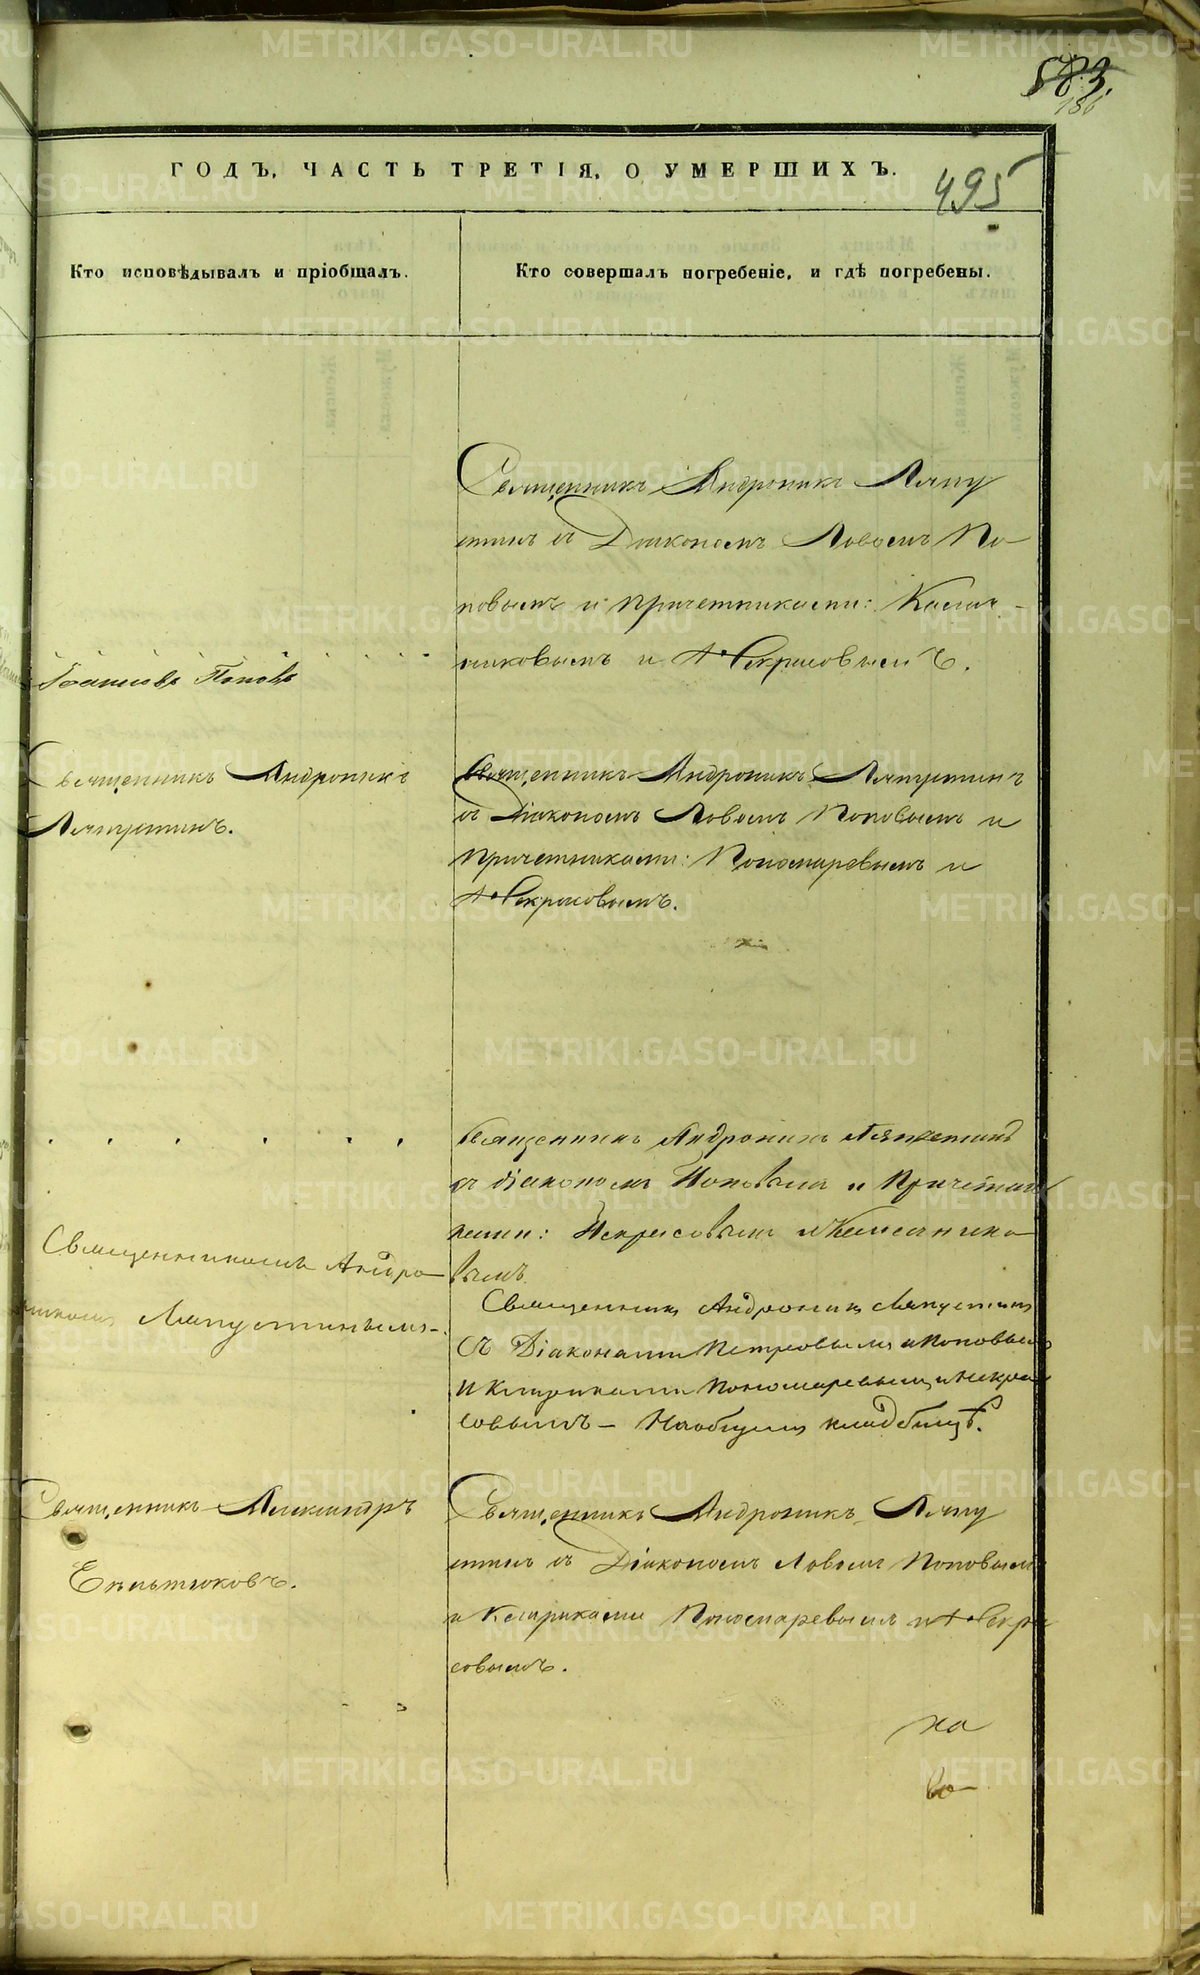 583.
186
ГОДЪ, ЧАСТЬ ТРЕТІЯ, О УМЕРШИХЪ.
495
Кто исповѣдывалъ и пріобщалъ.
Кто совершалъ погребеніе, и гдѣ погребены.
Священникъ Андроникъ Ляпу
стинъ съ Діакономъ Ловомъ По-
повымъ и причетниками:
никовымъ и Некрасовымъ.
Поповъ
Священникъ Андроникъ
Ляпустинъ.
Священникъ Андроникъ Ляпустинъ
съ Діакономъ Ловомъ Поповымъ и
Причетниками: Пономаревымъ и
Некрасовымъ.
Священникъ Андроникъ Ляпустинъ
съ діакономъ Поповымъ и Причетни
ками: Некрасовымъ и
вымъ
Священникомъ Андро-
никомъ Ляпустинымъ-
Священникъ Андроникъ Ляпустинъ
Съ Діаконами Петровымъ и Поповымъ
и Клириками Пономаревымъ и Некра
совымъ – На общемъ кладбищѣ.
Священникъ Александръ
Священникъ Андроникъ Ляпу
стинъ съ Діакономъ Ловомъ Поповымъ
и Клириками Пономаревымъ и Некра
совымъ.
на
во
METRIKI.GASO-URAL.RU